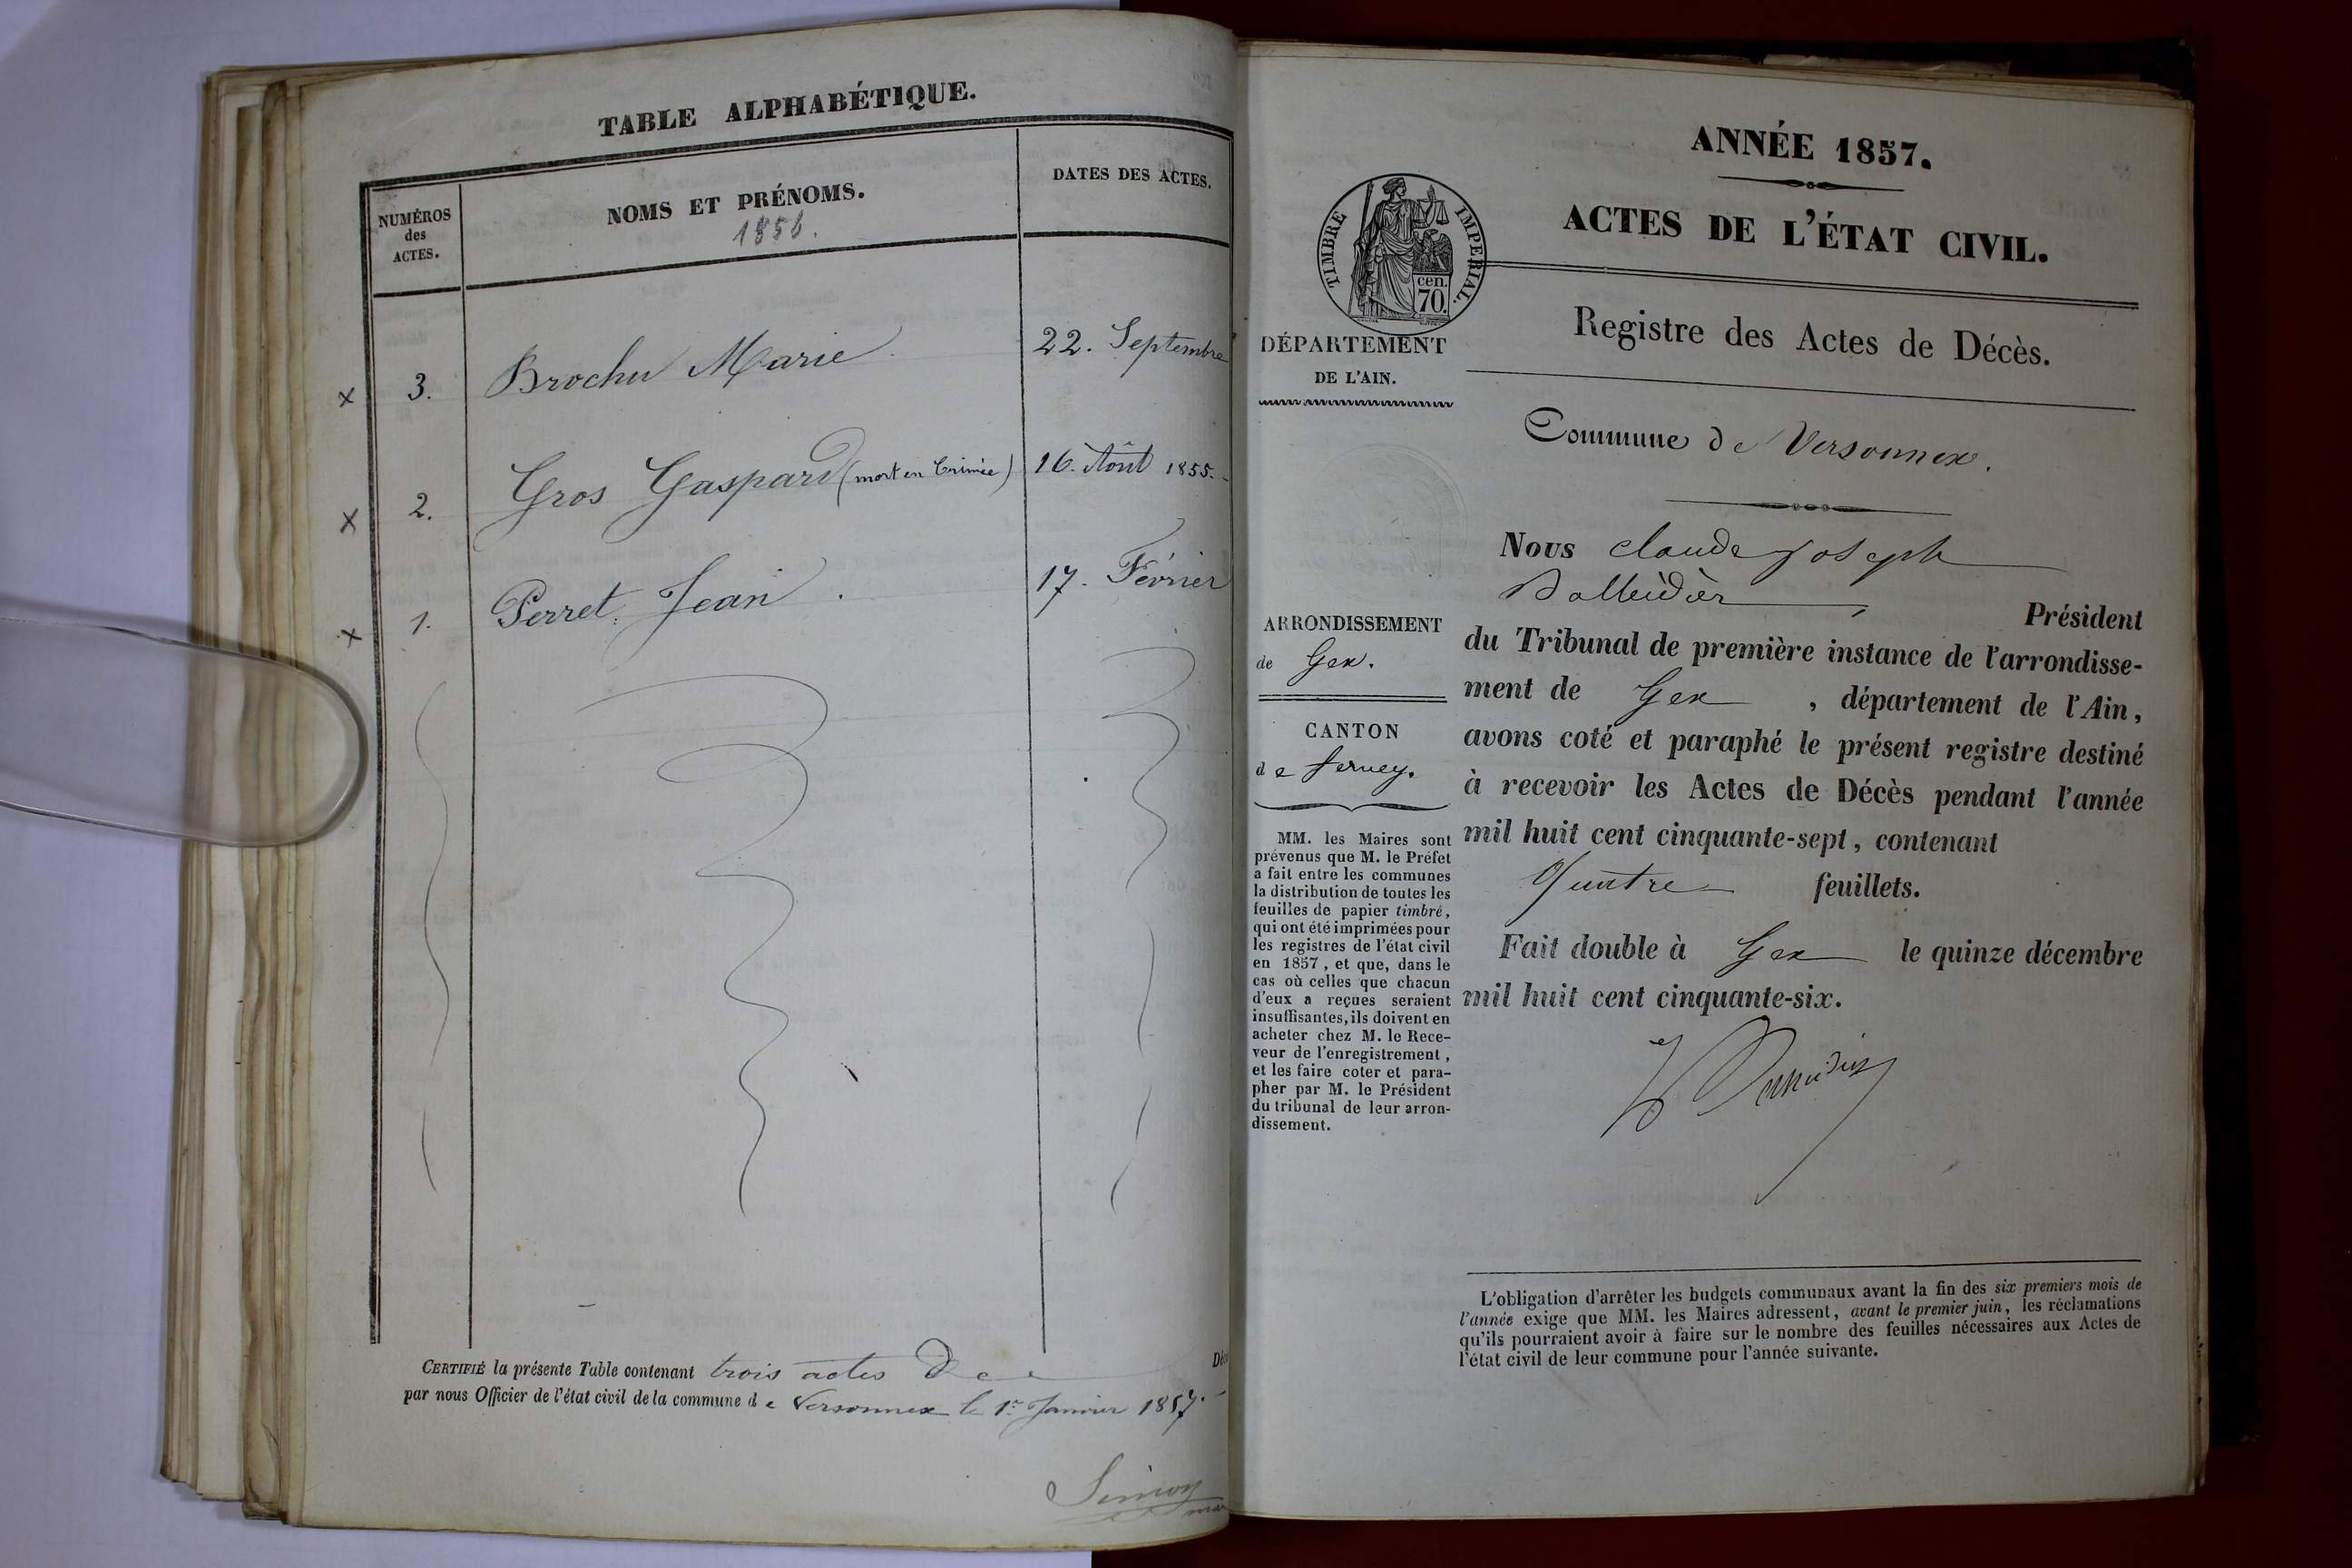 TABLE ALPHABÉTIQUE.
NUMÉROS
des
ACTES.
NOMS ET PRÉNOMS.
1856.
DATES DES ACTES.
x 3. Brochu Marie. 22. Septembre
x 2. Gros Gaspard (mort en Crimée) 16. Août 1855.
x 1. Perret Jean. 17. Février
CERTIFIÉ la présente Table contenant trois actes de
par nous Officier de l'état civil de la commune de Versonnex le 1er Janvier 1857.
Simon
ANNÉE 1857.
ACTES DE L'ÉTAT CIVIL.
TIMBRE IMPERIAL.
cen.
70.
DÉPARTEMENT
DE L'AIN.
Registre des Actes de Décès.
Commune de Versonnex.
ARRONDISSEMENT
de Gex.
CANTON
de ferney.
MM. les Maires sont
prévenus que M. le Préfet
a fait entre les communes
la distribution de toutes les
feuilles de papier timbré,
qui ont été imprimées pour
les registres de l'état civil
en 1857, et que, dans le
cas où celles que chacun
d'eux a reçues seraient
insuffisantes, ils doivent en
acheter chez M. le Rece-
veur de l'enregistrement,
et les faire coter et para-
pher par M. le Président
du tribunal de leur arron-
dissement.
Nous claude joseph
Président
du Tribunal de première instance de l'arrondisse-
ment de Gex, département de l'Ain,
avons coté et paraphé le présent registre destiné
à recevoir les Actes de Décès pendant l'année
mil huit cent cinquante-sept, contenant
feuillets.
Fait double à Gex le quinze décembre
mil huit cent cinquante-six.
L'obligation d'arrêter les budgets communaux avant la fin des six premiers mois de
l'année exige que MM. les Maires adressent, avant le premier juin, les réclamations
qu'ils pourraient avoir à faire sur le nombre des feuilles nécessaires aux Actes de
l'état civil de leur commune pour l'année suivante.